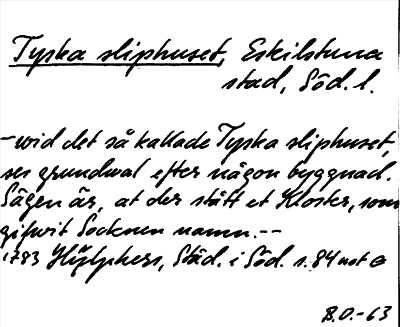 Tyska sliphuset, Eskilstuna
stad, Söd. l.
-wid det så kallade Tyska sliphuset,
ses grundwal efter någon byggnad.
Sägen är, at der stått et Kloster, som
gifwit Socknen namn.--
1783 Hülphers, Städ. i Söd. s. 84 not
B.O.-63